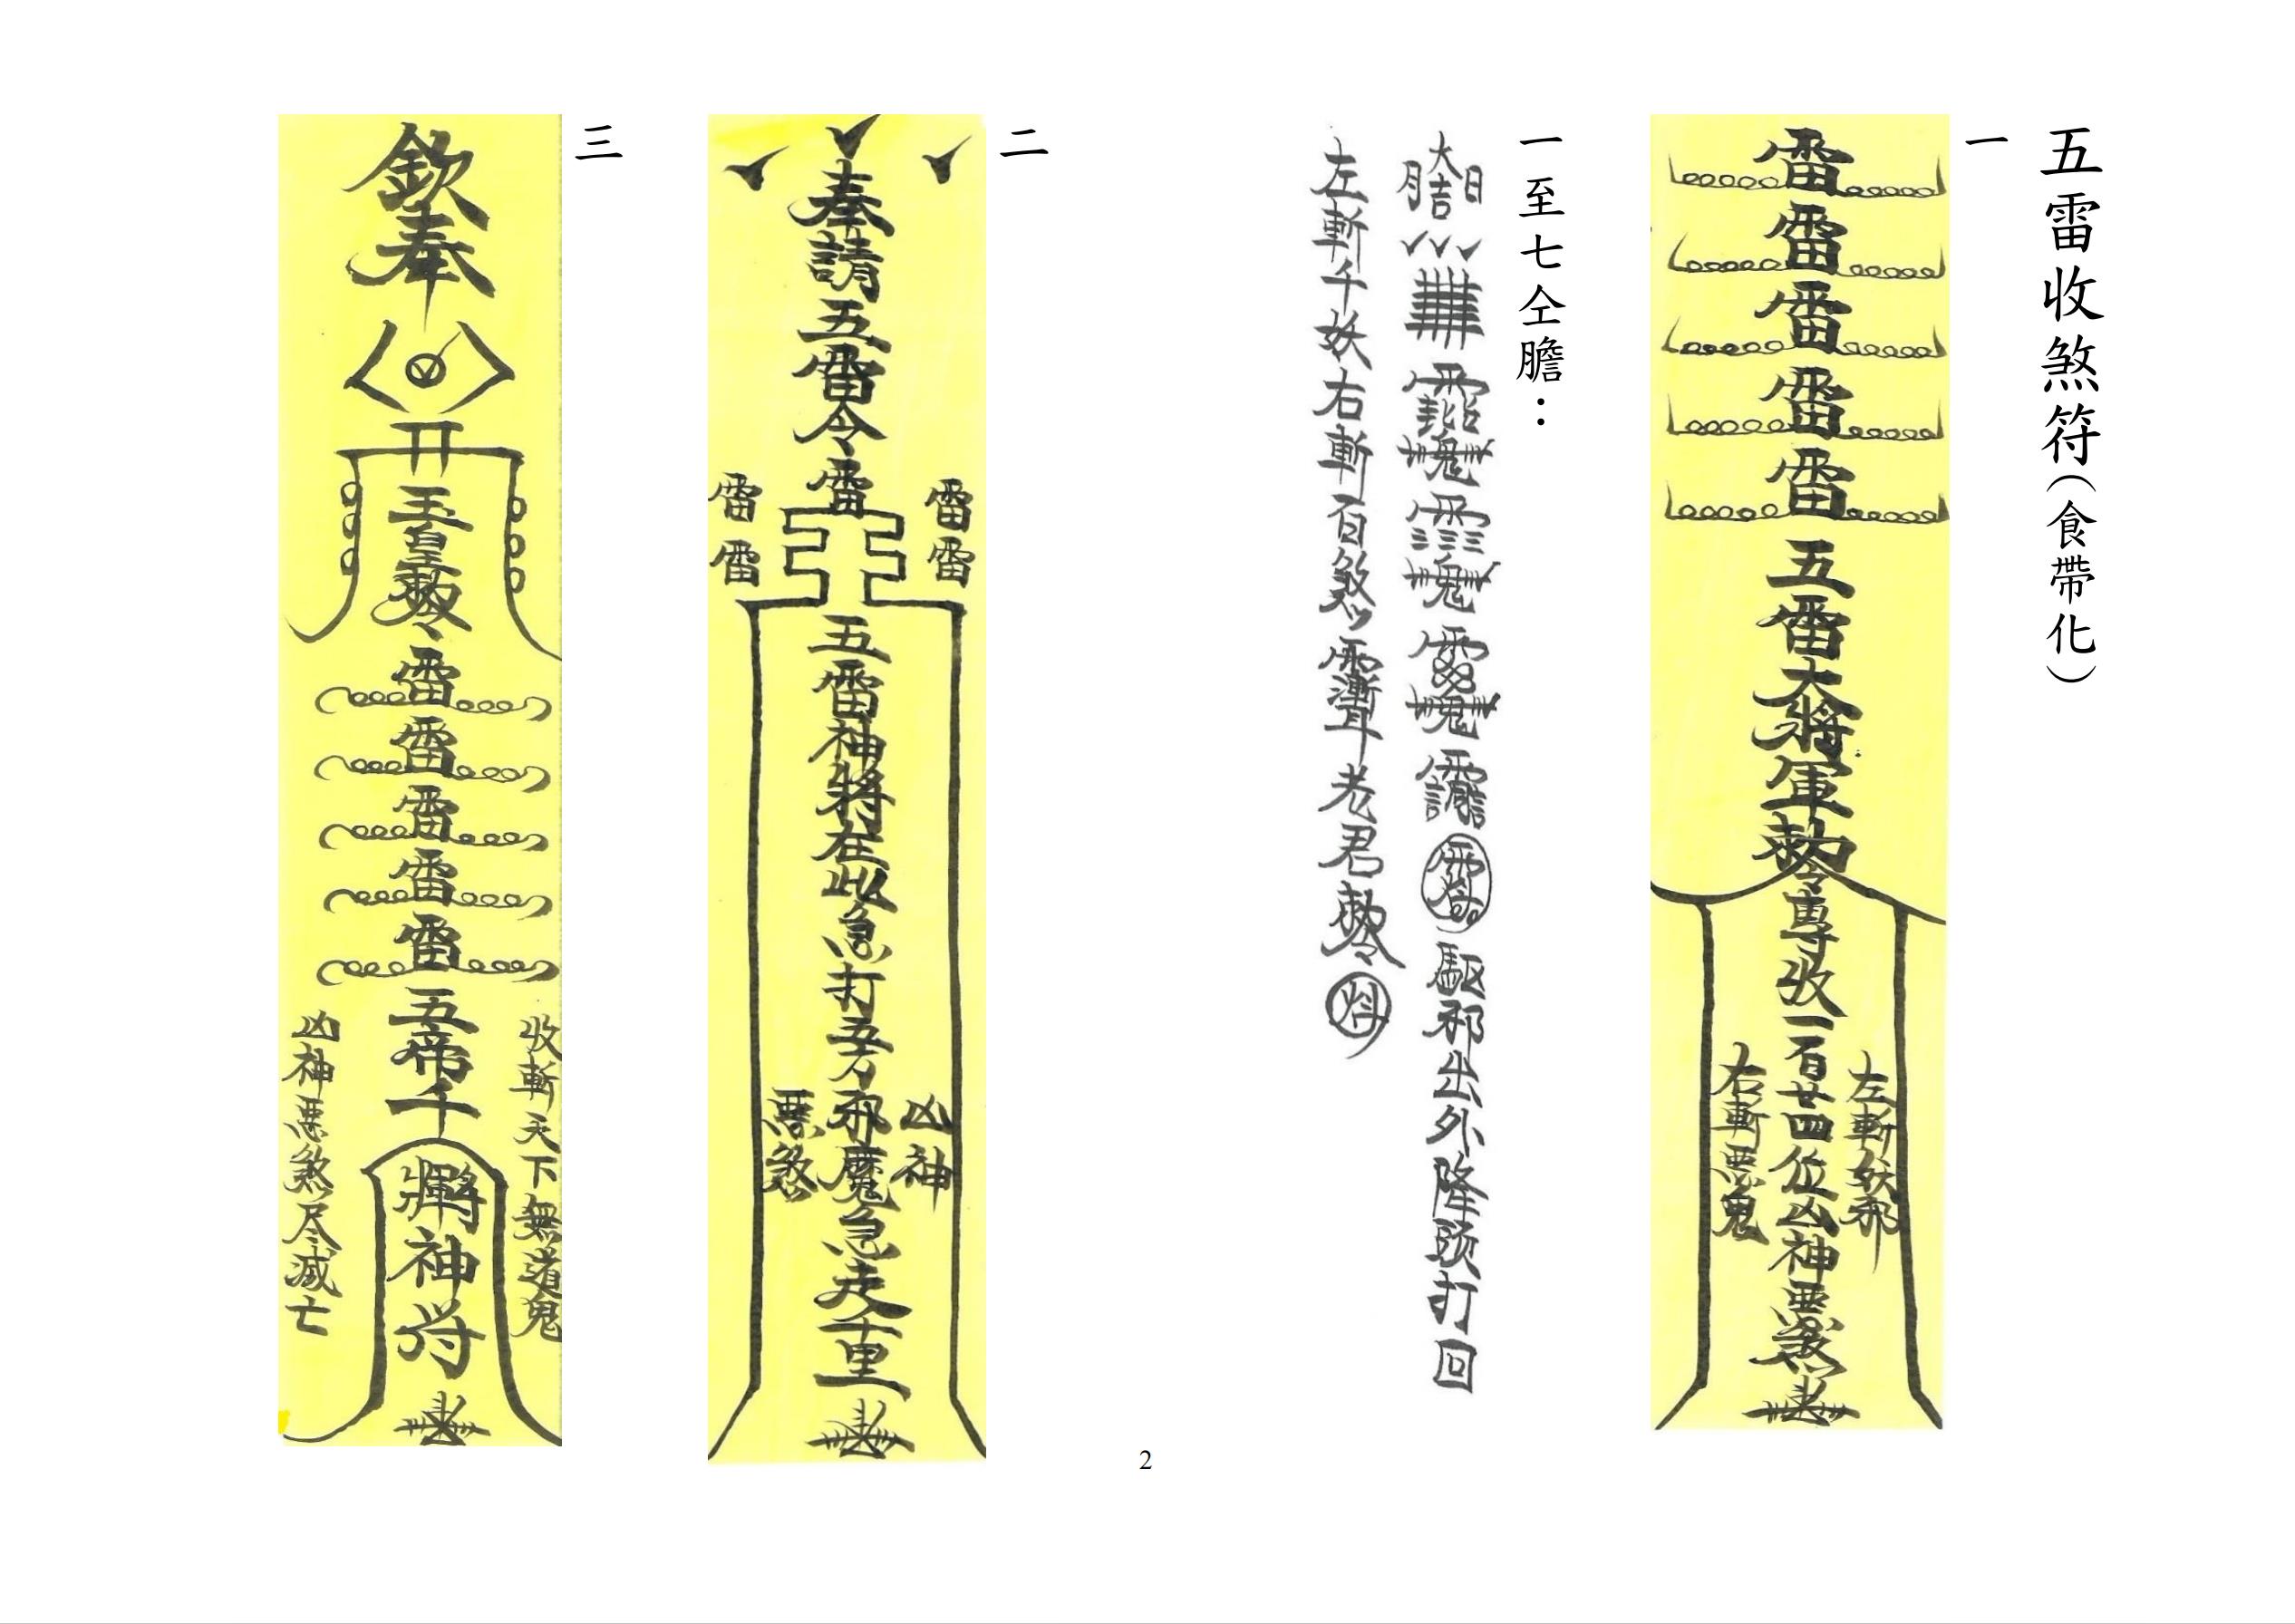 五雷收煞符(食帶化)
一
雷
雷
雷
雷
雷
五雷大將軍勅令專收一百廿四位凶神惡煞
左斬妖邪
右斬惡鬼
一至七仝膽:
驅邪出外降頭打回
左斬千妖右斬百煞 老君勅令魁
二
奉請五雷令雷
雷雷
雷雷
五雷神將在此急打五方邪魔急走千里
凶神
惡煞
三
欽奉
玉皇勅令
雷
雷
雷
雷
雷
五帝千
神符
收斬天下無道鬼
凶神惡煞尽滅亡
2